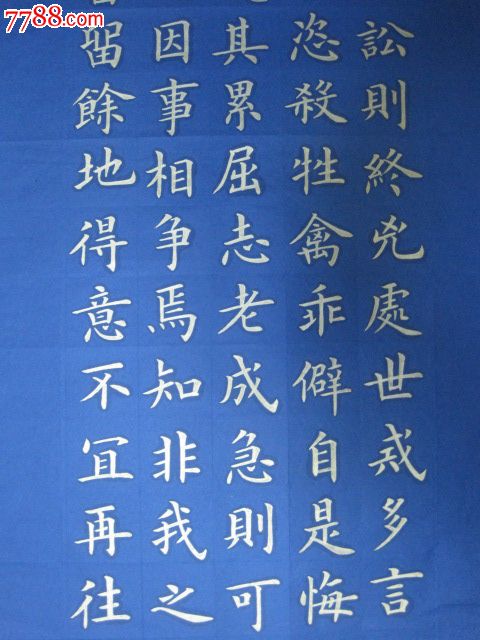 7788.com
訟則終兇處世戒多言
恣殺牲禽乖僻自是悔
其累屈志老成急則可
因事相争焉知非我之
留餘地得意不冝再往